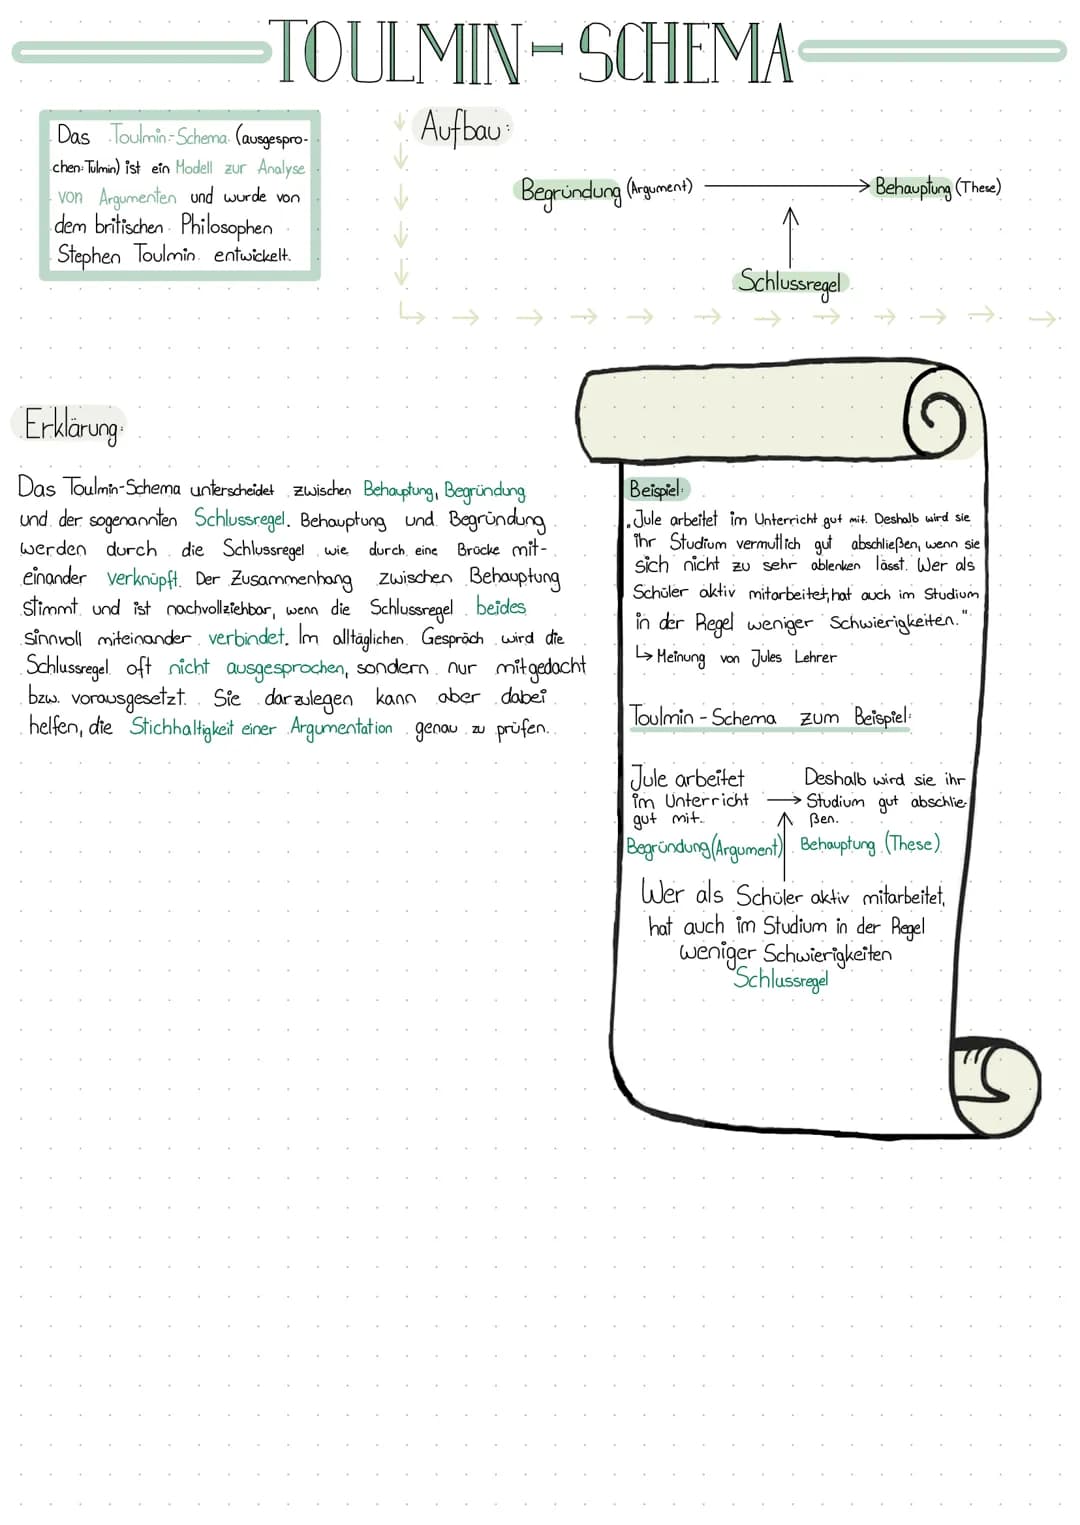 TOULMIN-SCHEMA
Das Toulmin-Schema (ausgespro-
chen: Tulmin) ist ein Modell zur Analyse
von Argumenten und wurde von
dem britischen Philosophen
Stephen Toulmin entwickelt.
Aufbau:
Begründung (Argument) → Behauptung (These)
↑
Schlussregel
Erklärung:
Das Toulmin-Schema unterscheidet zwischen Behauptung, Begründung
und der sogenannten Schlussregel. Behauptung und Begründung
werden durch die Schlussregel wie durch eine Brücke mit-
einander verknüpft. Der Zusammenhang zwischen Behauptung
stimmt und ist nachvollziehbar, wenn die Schlussregel beides
sinnvoll miteinander verbindet. Im alltäglichen Gespräch wird die
Schlussregel oft nicht ausgesprochen, sondern nur mitgedacht
bzw. vorausgesetzt. Sie darzulegen kann aber dabei
helfen, die Stichhaltigkeit einer Argumentation genau zu prüfen.
Beispiel:
„Jule arbeitet im Unterricht gut mit. Deshalb wird sie
ihr Studium vermutlich gut abschließen, wenn sie
sich nicht zu sehr ablenken lässt. Wer als
Schüler aktiv mitarbeitet, hat auch im Studium
in der Regel weniger Schwierigkeiten."
↳ Meinung von Jules Lehrer
Toulmin-Schema zum Beispiel:
Jule arbeitet
im Unterricht
gut mit.
Begründung (Argument)
→
Deshalb wird sie ihr
Studium gut abschlie-
ßen.
Behauptung (These)
↑
Wer als Schüler aktiv mitarbeitet,
hat auch im Studium in der Regel
weniger Schwierigkeiten
Schlussregel